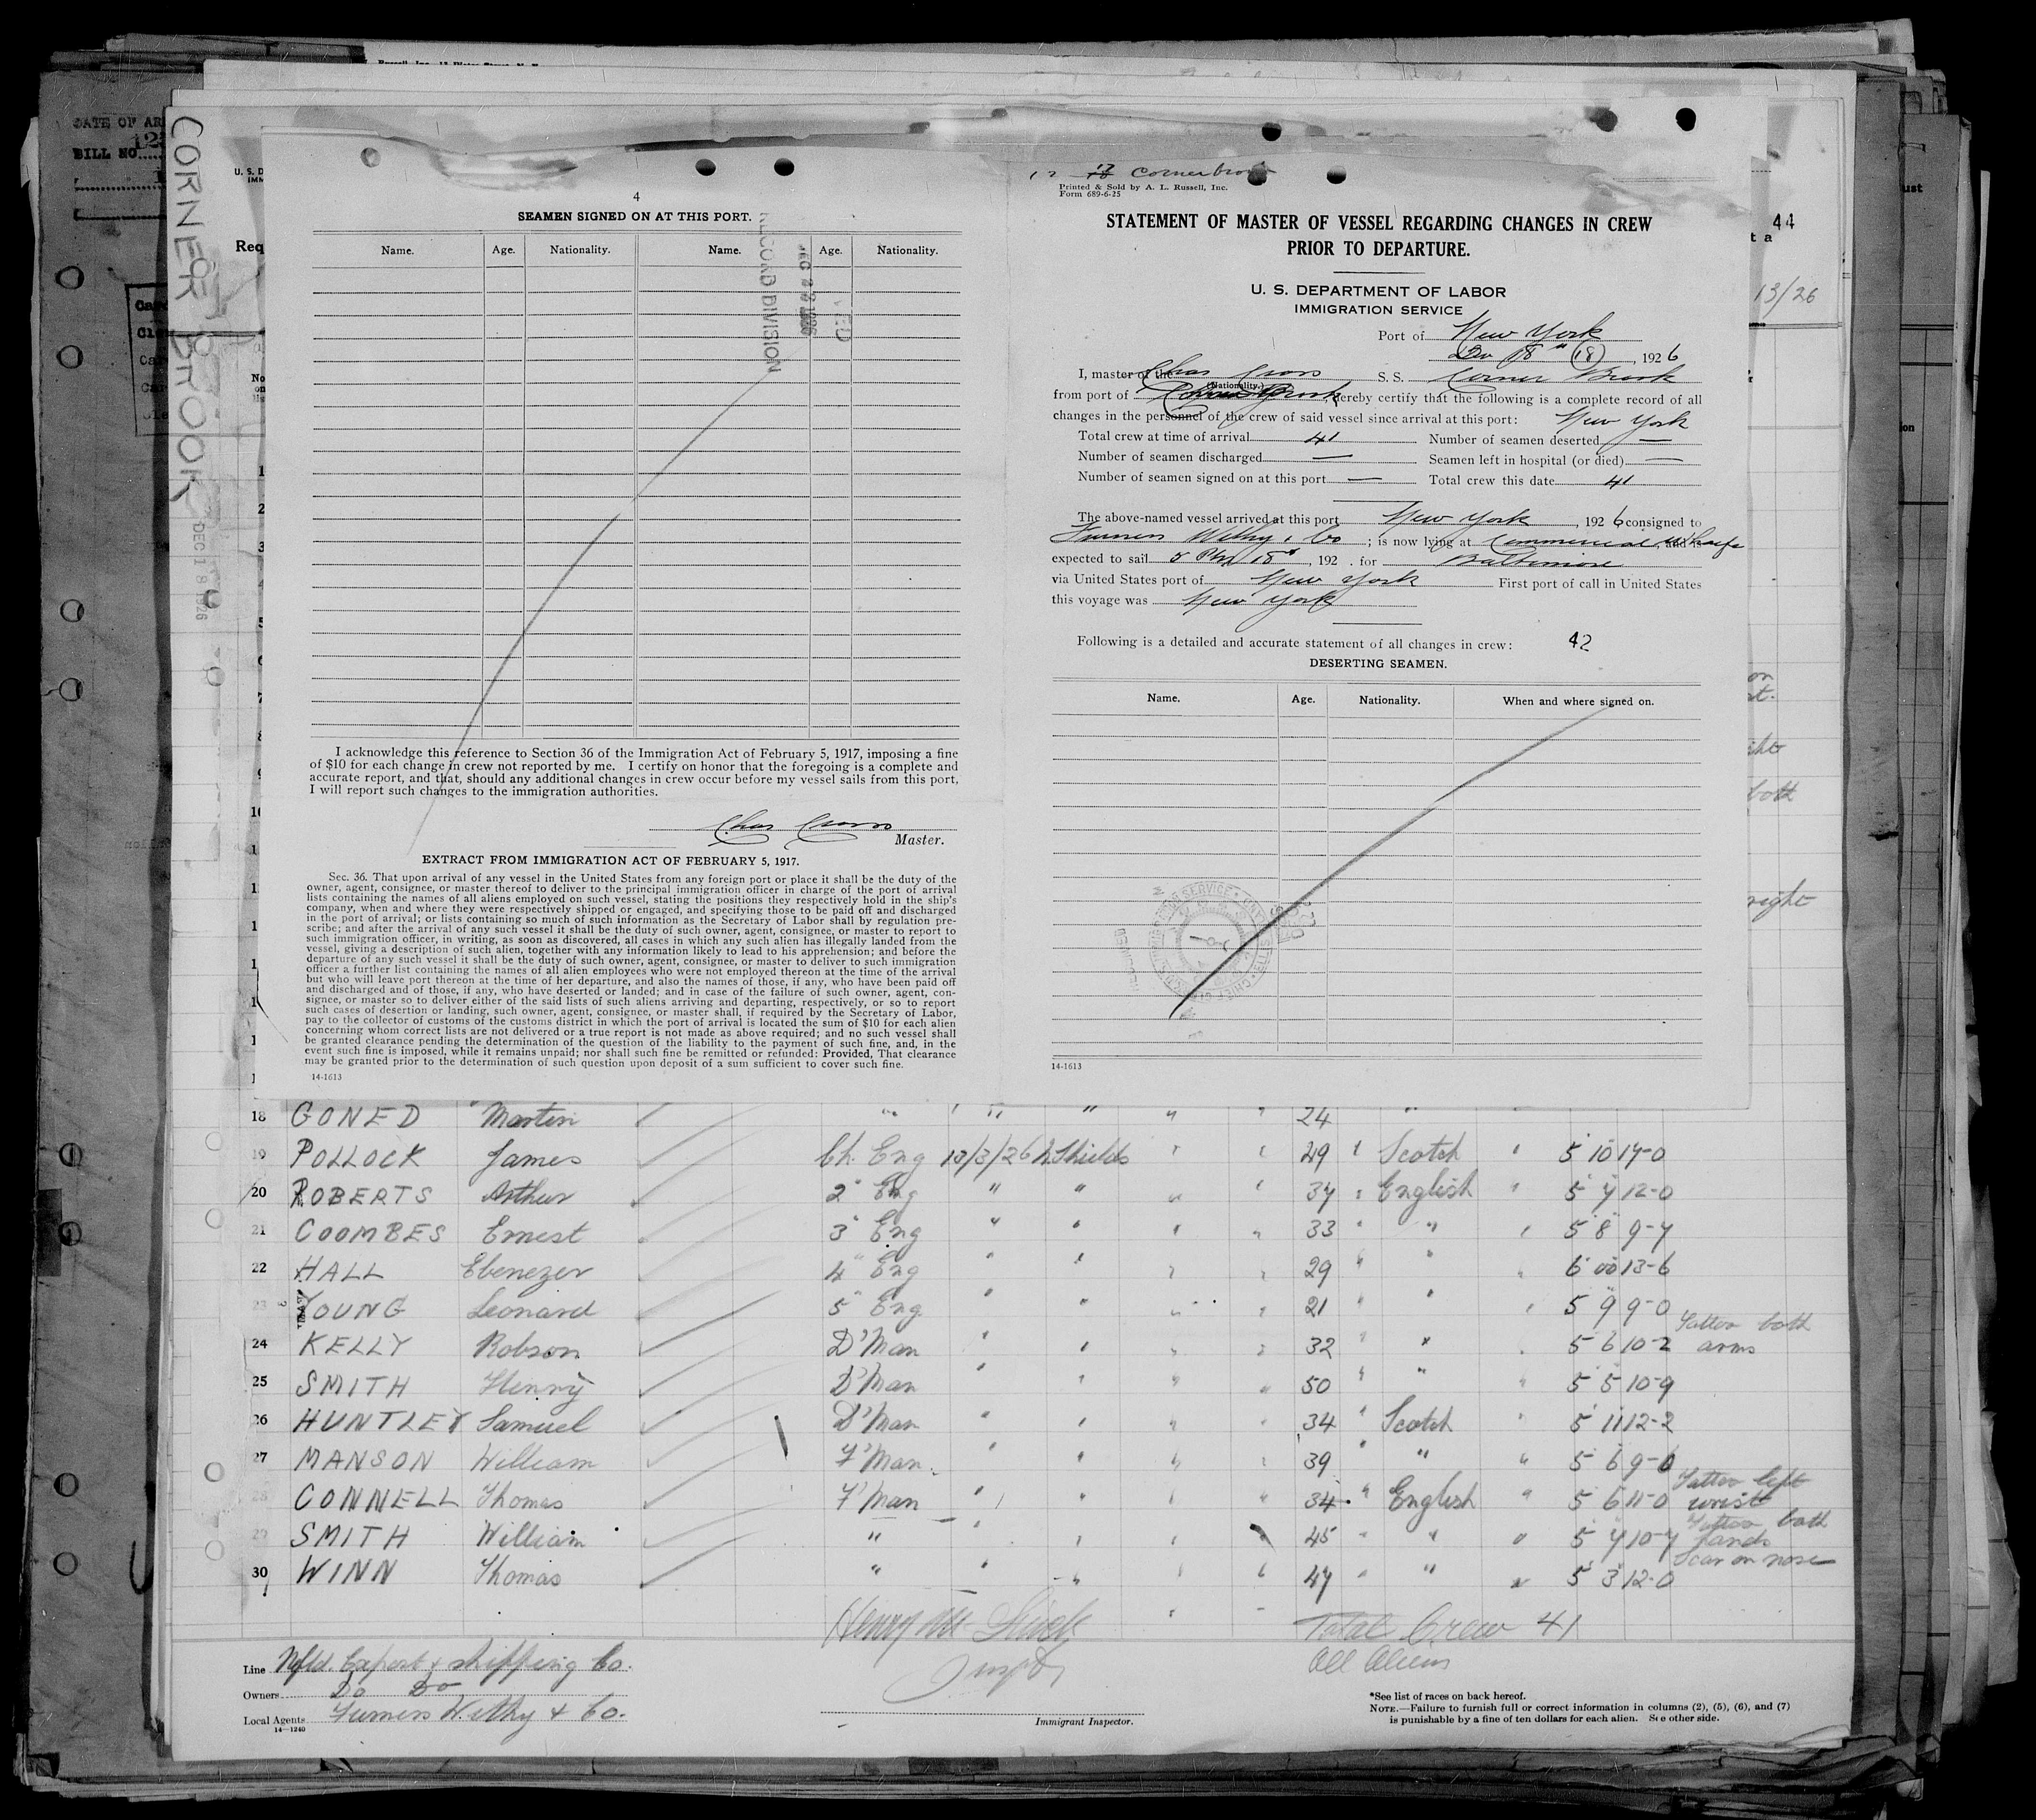 DATE OF AR
BILL NO.
CORNER BROOK
DEC 18 1926
4
SEAMEN SIGNED ON AT THIS PORT.
Name. Age. Nationality. Name. Age. Nationality.
RECORD DIVISION
I acknowledge this reference to Section 36 of the Immigration Act of February 5, 1917, imposing a fine
of $10 for each change in crew not reported by me. I certify on honor that the foregoing is a complete and
accurate report, and that, should any additional changes in crew occur before my vessel sails from this port,
I will report such changes to the immigration authorities.
Chas Cross
Master.
EXTRACT FROM IMMIGRATION ACT OF FEBRUARY 5, 1917.
Sec. 36. That upon arrival of any vessel in the United States from any foreign port or place it shall be the duty of the
owner, agent, consignee, or master thereof to deliver to the principal immigration officer in charge of the port of arrival
lists containing the names of all aliens employed on such vessel, stating the positions they respectively hold in the ship's
company, when and where they were respectively shipped or engaged, and specifying those to be paid off and discharged
in the port of arrival; or lists containing so much of such information as the Secretary of Labor shall by regulation pre-
scribe; and after the arrival of any such vessel it shall be the duty of such owner, agent, consignee, or master to report to
such immigration officer, in writing, as soon as discovered, all cases in which any such alien has illegally landed from the
vessel, giving a description of such alien, together with any information likely to lead to his apprehension; and before the
departure of any such vessel it shall be the duty of such owner, agent, consignee, or master to deliver to such immigration
officer a further list containing the names of all alien employees who were not employed thereon at the time of the arrival
but who will leave port thereon at the time of her departure, and also the names of those, if any, who have been paid off
and discharged and of those, if any, who have deserted or landed; and in case of the failure of such owner, agent, con-
signee, or master so to deliver either of the said lists of such aliens arriving and departing, respectively, or so to report
such cases of desertion or landing, such owner, agent, consignee, or master shall, if required by the Secretary of Labor,
pay to the collector of customs of the customs district in which the port of arrival is located the sum of $10 for each alien
concerning whom correct lists are not delivered or a true report is not made as above required; and no such vessel shall
be granted clearance pending the determination of the question of the liability to the payment of such fine, and, in the
event such fine is imposed, while it remains unpaid; nor shall such fine be remitted or refunded: Provided, That clearance
may be granted prior to the determination of such question upon deposit of a sum sufficient to cover such fine.
14-1613
Cornerbrook
Printed & Sold by A. L. Russell, Inc.
Form 689-6-25
STATEMENT OF MASTER OF VESSEL REGARDING CHANGES IN CREW
PRIOR TO DEPARTURE.
44
13/26
U. S. DEPARTMENT OF LABOR
IMMIGRATION SERVICE
Port of New York
18 (18), 1926
I, master of the Chas Cross S. S. Corner Brook
(Nationality.)
from port of Corner Brook, hereby certify that the following is a complete record of all
changes in the personnel of the crew of said vessel since arrival at this port: New York
Total crew at time of arrival 41 Number of seamen deserted —
Number of seamen discharged — Seamen left in hospital (or died) —
Number of seamen signed on at this port — Total crew this date 41
The above-named vessel arrived at this port New York, 1926 consigned to
Furness Withy & Co; is now lying at Commercial Wharfe, and
expected to sail 5 PM 18th, 192 . for Baltimore
via United States port of New York First port of call in United States
this voyage was New York
Following is a detailed and accurate statement of all changes in crew: 42
DESERTING SEAMEN.
Name. Age. Nationality. When and where signed on.
14-1613
18 GONED Martin " " " " " 24 "
19 POLLOCK James Ch. Eng 12/3/26 N. Shields " " 49 " Scotch " 5 10 14-0
20 ROBERTS Arthur 2" Eng " " " " 37 " English " 5 7 12-0
21 COOMBES Ernest 3" Eng " " " " 33 " " " 5 8 9-7
22 HALL Ebenezer 4" Eng " " " " 29 " " " 6 00 13-6
23 YOUNG Leonard 5" Eng " " " " 21 " " " 5 9 9-0
24 KELLY Robson D'Man " " " " 32 " " " 5 6 10-2 Tattoo both arms
25 SMITH Henry D'Man " " " " 50 " " " 5 5 10-9
26 HUNTLEY Samuel D'Man " " " " 34 " Scotch " 5 11 12-2
27 MANSON William F'Man " " " " 39 " " " 5 6 9-0
28 CONNELL Thomas F'Man " " " " 34 " English " 5 6 11-0 Tattoo left wrist
29 SMITH William " " " " " 45 " " " 5 7 10-7 Tattoo both hands
30 WINN Thomas " " " " " 47 " " " 5 3 12-0 Scar on nose
Total Crew 41
All Aliens
Line Nfld. Export & Shipping Co.
Owners Do Do
Local Agents Furness Withy & Co.
14—1240
Immigrant Inspector.
*See list of races on back hereof.
NOTE.—Failure to furnish full or correct information in columns (2), (5), (6), and (7)
is punishable by a fine of ten dollars for each alien. See other side.